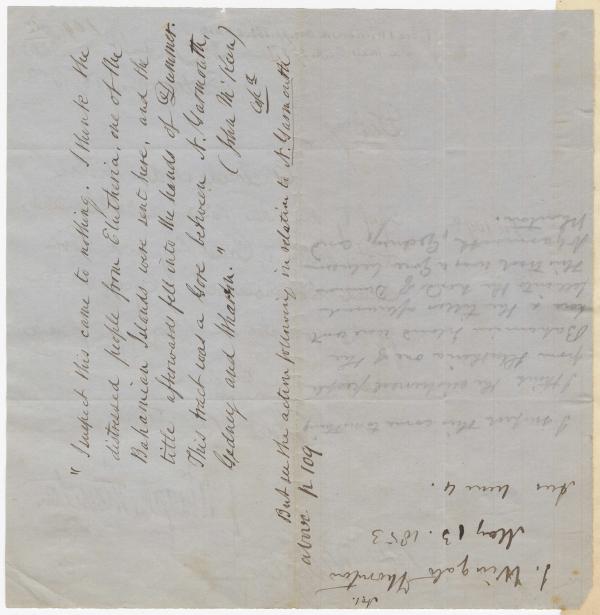 "I suspect this came to nothing. I think the
distressed people from Eleutheria, one of the
Bahamian Islands were sent here, and the
title afterwards fell into the hands of Dummer.
This tract was a Gore between N. Yarmouth,
Gedney and Wharton."
(John McKeen)
But see the action following in relation to N. Yarmouth
above. p 109
J. Wingate Thornton
May 13. 1853
Ans June 4.
I suspect this came to nothing
I think the distressed people
from Eleutheria one of the
Bahamian Islands were sent
here & the title afterwards
fell into the hands of Dummer
This tract was a Gore between
N Yarmouth, Gedney, and
Wharton.